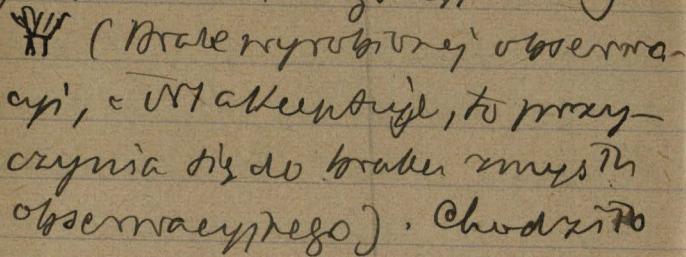 (Brak wyrobionej obserwa-
cji, a akceptuje, to przy-
czynia się do braku zmysłu
obserwacyjnego). Chodziło